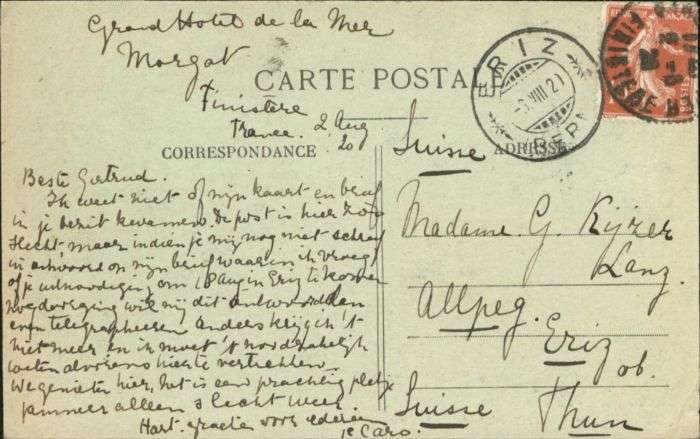 Grand Hotel de la Mer
Morgat
Finistère
France. 2 Aug
20
CARTE POSTALE
CORRESPONDANCE
ADRESSE
ERIZ
BERN
FINISTERE
Beste Gertrud.
Ik weet niet of mijn kaart en brief
in je bezit kwamen. De post is hier zoo
slecht, maar indien je mij nog niet schreef
in antwoord op mijn brief waarin ik vroeg
of je uitnoodiging om 18 Aug in Eriz te komen
nog doorging wil mij dit antwoord dan
even telegrapheeren anders krijg ik 't
niet meer en ik moet 't noodzakelijk
weten alvorens hier te vertrekken.
We genieten hier, het is een prachtig plekje
jammer alleen slecht weer.
Hart. groeten voor iedereen
je Caro.
Suisse
Madame G. Kijzer
Lanz.
Allpeg.
Eriz
ob.
Suisse Thun